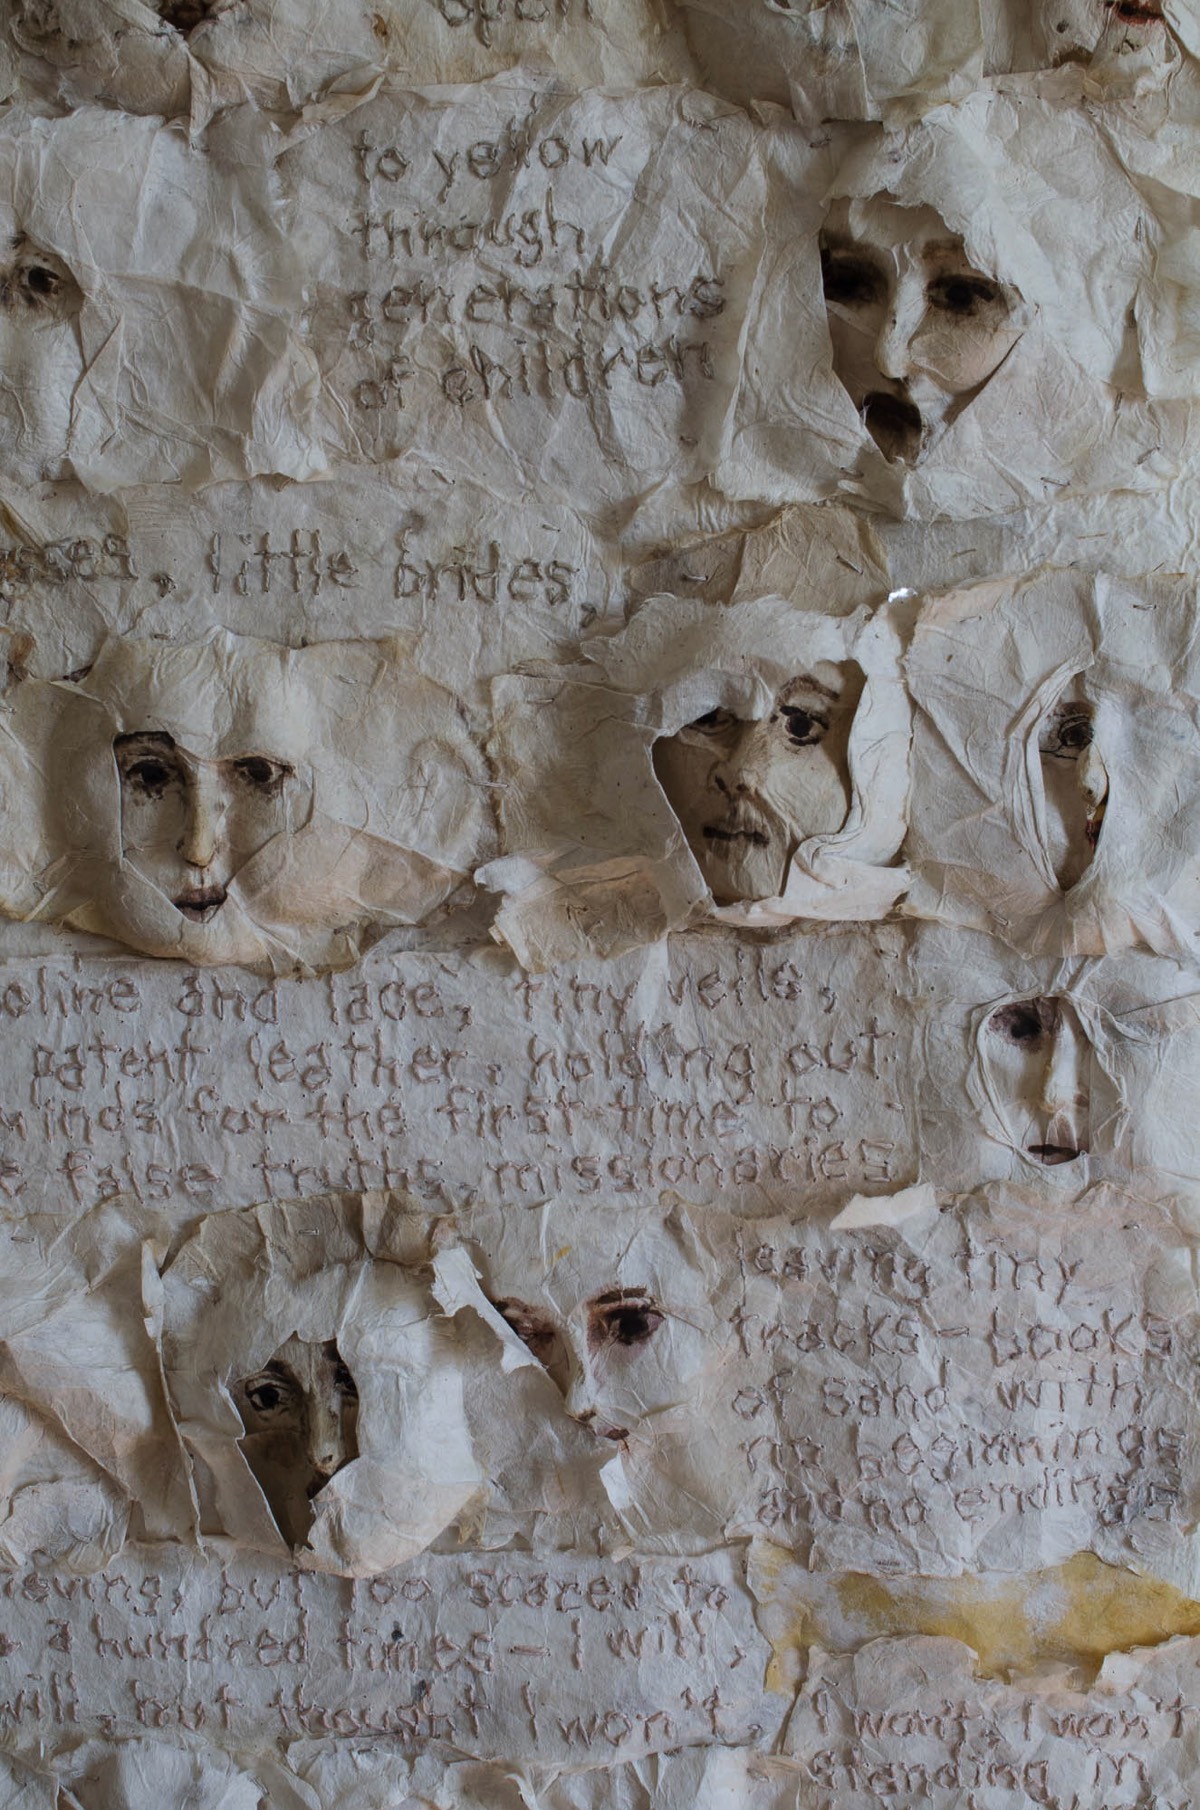 to yellow
through
generations
of children
little brides,
and lace, tiny veils,
patent leather, holding out
for the first time to
false truths, missionaries
leaving tiny
tracks - books
of sand with
no beginnings
and no endings
but too scared to
a hundred times - I will,
will, but thought I won't,
I won't, I won't
standing in